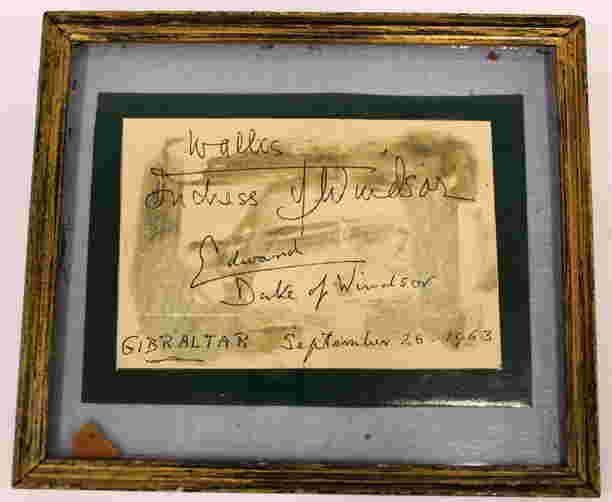 Wallis
Duchess of Windsor
Edward
Duke of Windsor
GIBRALTAR September 26 - 1963